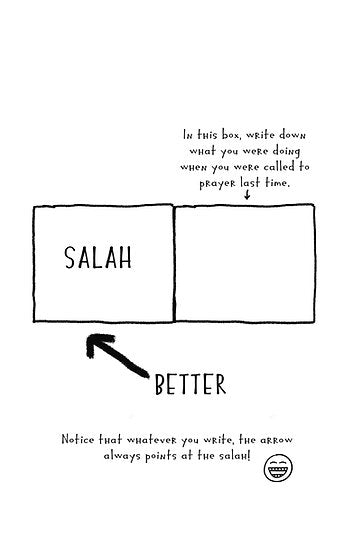 In this box, write down
what you were doing
when you were called to
prayer last time.
SALAH
BETTER
Notice that whatever you write, the arrow
always points at the salah!